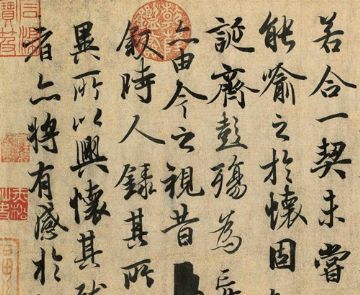 若合一契未嘗
能喻之於懷固
誕齊彭殤為
亦由今之視昔
敘時人錄其所
異所以興懷其
者亦將有感於